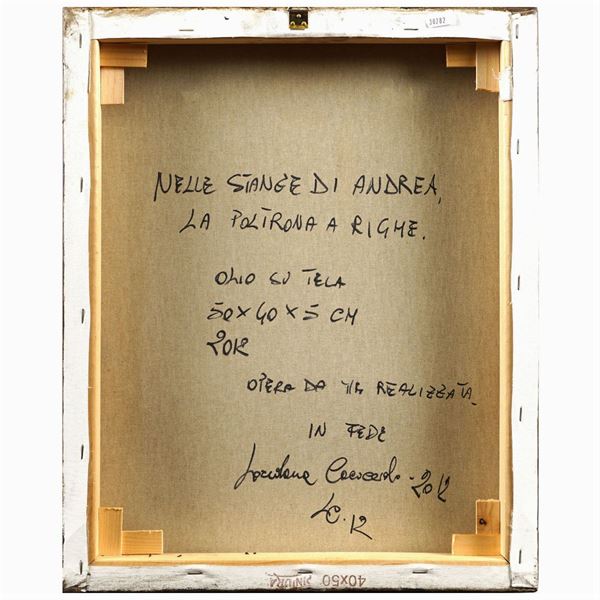 30282
NELLE STANZE DI ANDREA,
LA POLTRONA A RIGHE.
OLIO SU TELA
50x40x5 CM
2012
OPERA DA ME REALIZZATA
IN FEDE
2012
LC. 12
40x50